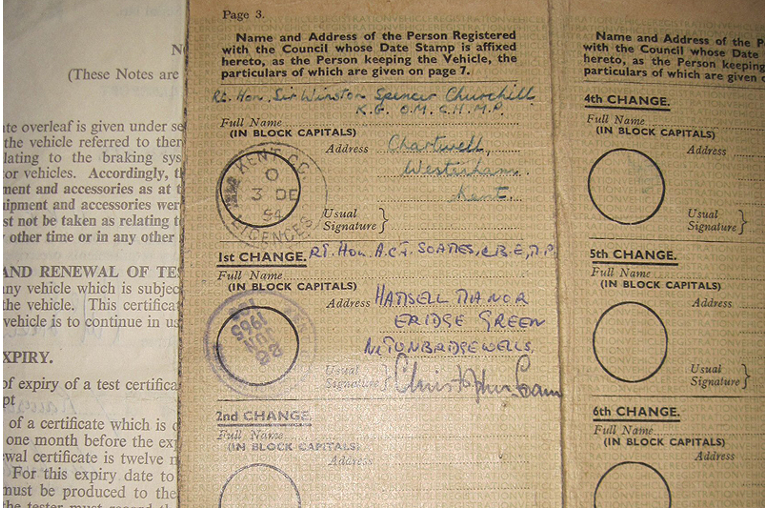 N
(These Notes are
te overleaf is given under se
the vehicle referred to ther
lating to the braking sys
or vehicles. Accordingly, t
ment and accessories as at t
uipment and accessories were
st not be taken as relating to
other time or in any other
AND RENEWAL OF TES
any vehicle which is subjec
the vehicle. This certifica
vehicle is to continue in us
EXPIRY.
of expiry of a test certifica
pt
of a certificate which is
one month before the exp
wal certificate is twelve n
For this expiry date to
must be produced to the
the tester must record th
Page 3.
Name and Address of the Person Registered
with the Council whose Date Stamp is affixed
hereto, as the Person keeping the Vehicle, the
particulars of which are given on page 7.
Rt. Hon. Sir Winston Spencer Churchill
K.G. O.M. C.H. M.P.
Full Name
(IN BLOCK CAPITALS)
Address Chartwell,
Westerham,
Kent.
KENT C.C.
0
3 DE
54
LICENCES
Usual
Signature }
1st CHANGE. RT. HON. A.C.J. SOAMES, C.B.E, M.P.
Full Name
(IN BLOCK CAPITALS)
Address HAMSELL MANOR
ERIDGE GREEN
Nr TUNBRIDGE WELLS.
1965
Usual
Signature } Christopher Soames
2nd CHANGE.
Full Name
(IN BLOCK CAPITALS)
Address
Name and Address of the P
with the Council whose Da
hereto, as the Person keeping
particulars of which are given o
4th CHANGE.
Full Name
(IN BLOCK CAPITALS)
Address
Usual
Signature }
5th CHANGE.
Full Name
(IN BLOCK CAPITALS)
Address
Usual
Signature }
6th CHANGE.
Full Name
(IN BLOCK CAPITALS)
Address